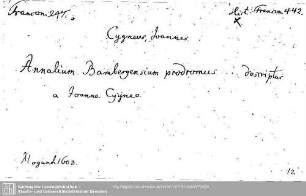 Francon. 297.
Hist. Francon. 442.
Cygneus, Joannes.
Annalium Bambergensium prodromus descriptus
a Joanne Cygneo.
Mogunt. 1603.
12.
Sächsische Landesbibliothek -
Staats- und Universitätsbibliothek Dresden